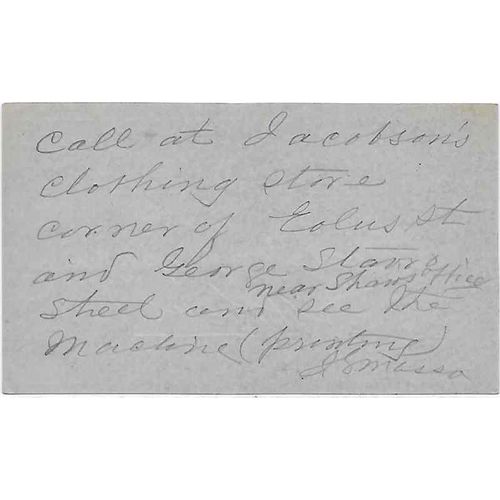 Call at Jacobson's
clothing store
corner of Eolus St
and George Stavro
near Shaws Office
Steel can see the
Machine (printing)